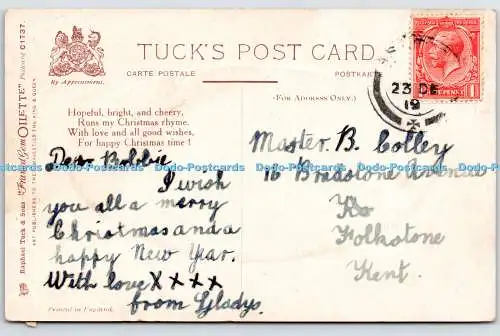 TUCK'S POST CARD
CARTE POSTALE
POSTKART
By Appointment.
(FOR ADDRESS ONLY.)
Raphael Tuck & Sons "Framed Gem OILETTE" Postcard C1737.
ART PUBLISHERS TO THEIR MAJESTIES THE KING & QUEEN
Hopeful, bright, and cheery,
Runs my Christmas rhyme.
With love and all good wishes,
For happy Christmas time!
Dear Bobbie
I wish
you all a merry
Christmas and a
happy New Year.
With love X X X X
from Gladys.
Printed in England.
23 DE
19
PENNY
1
Master. B. Colley
16 Bradstone Avenue
Folkstone
Kent.
Dodo-Postcards Dodo-Postcards Dodo-Postcards Dodo-Postcards